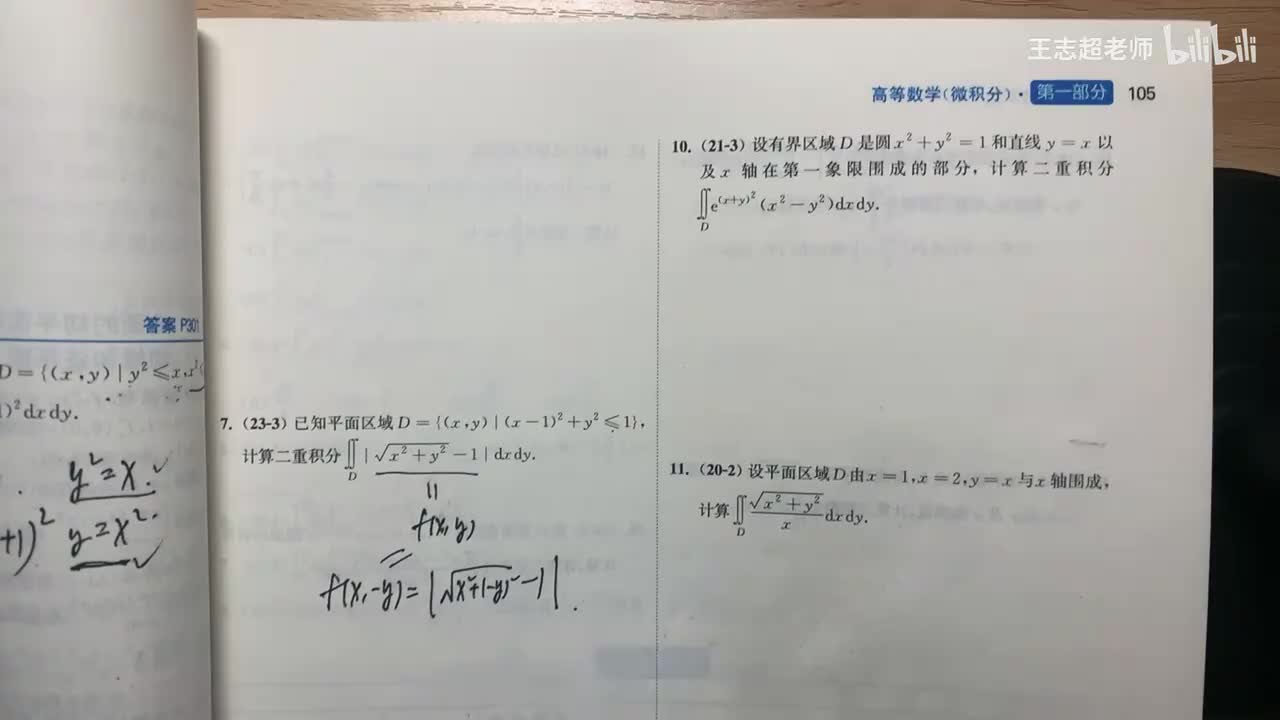 王志超老师 bilibili
高等数学(微积分)· 第一部分 105
答案 P301
D={(x,y)|y²≤x,x²
)²dxdy.
y²=x.
+1)² y=x².
7. (23-3) 已知平面区域 D={(x,y)|(x-1)²+y²≤1},
计算二重积分∬_D|√(x²+y²)-1|dxdy.
f(x,y)
f(x,-y)=|√(x²+(-y)²)-1|.
10. (21-3) 设有界区域 D 是圆 x²+y²=1 和直线 y=x 以
及 x 轴在第一象限围成的部分,计算二重积分
∬_D e^{(x+y)²}(x²-y²)dxdy.
11. (20-2) 设平面区域 D 由 x=1,x=2,y=x 与 x 轴围成,
计算∬_D √(x²+y²)/x dxdy.